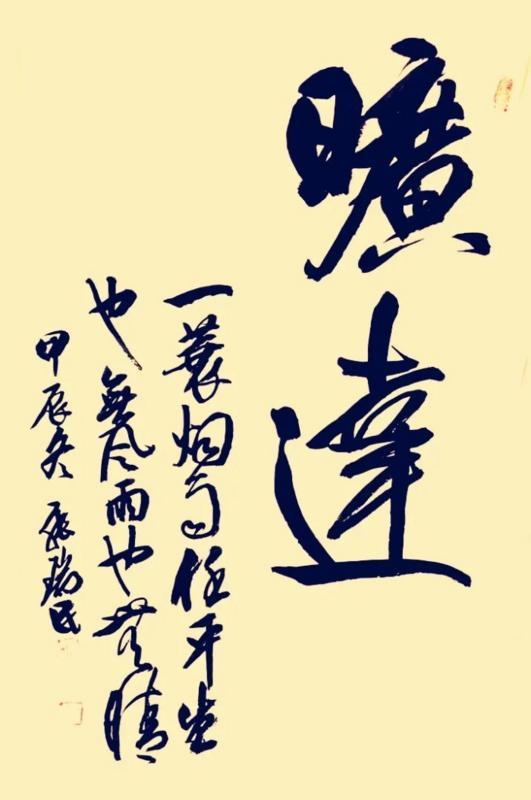 曠達
一蓑烟雨任平生
也無风雨也無晴
甲辰冬 張瑞民